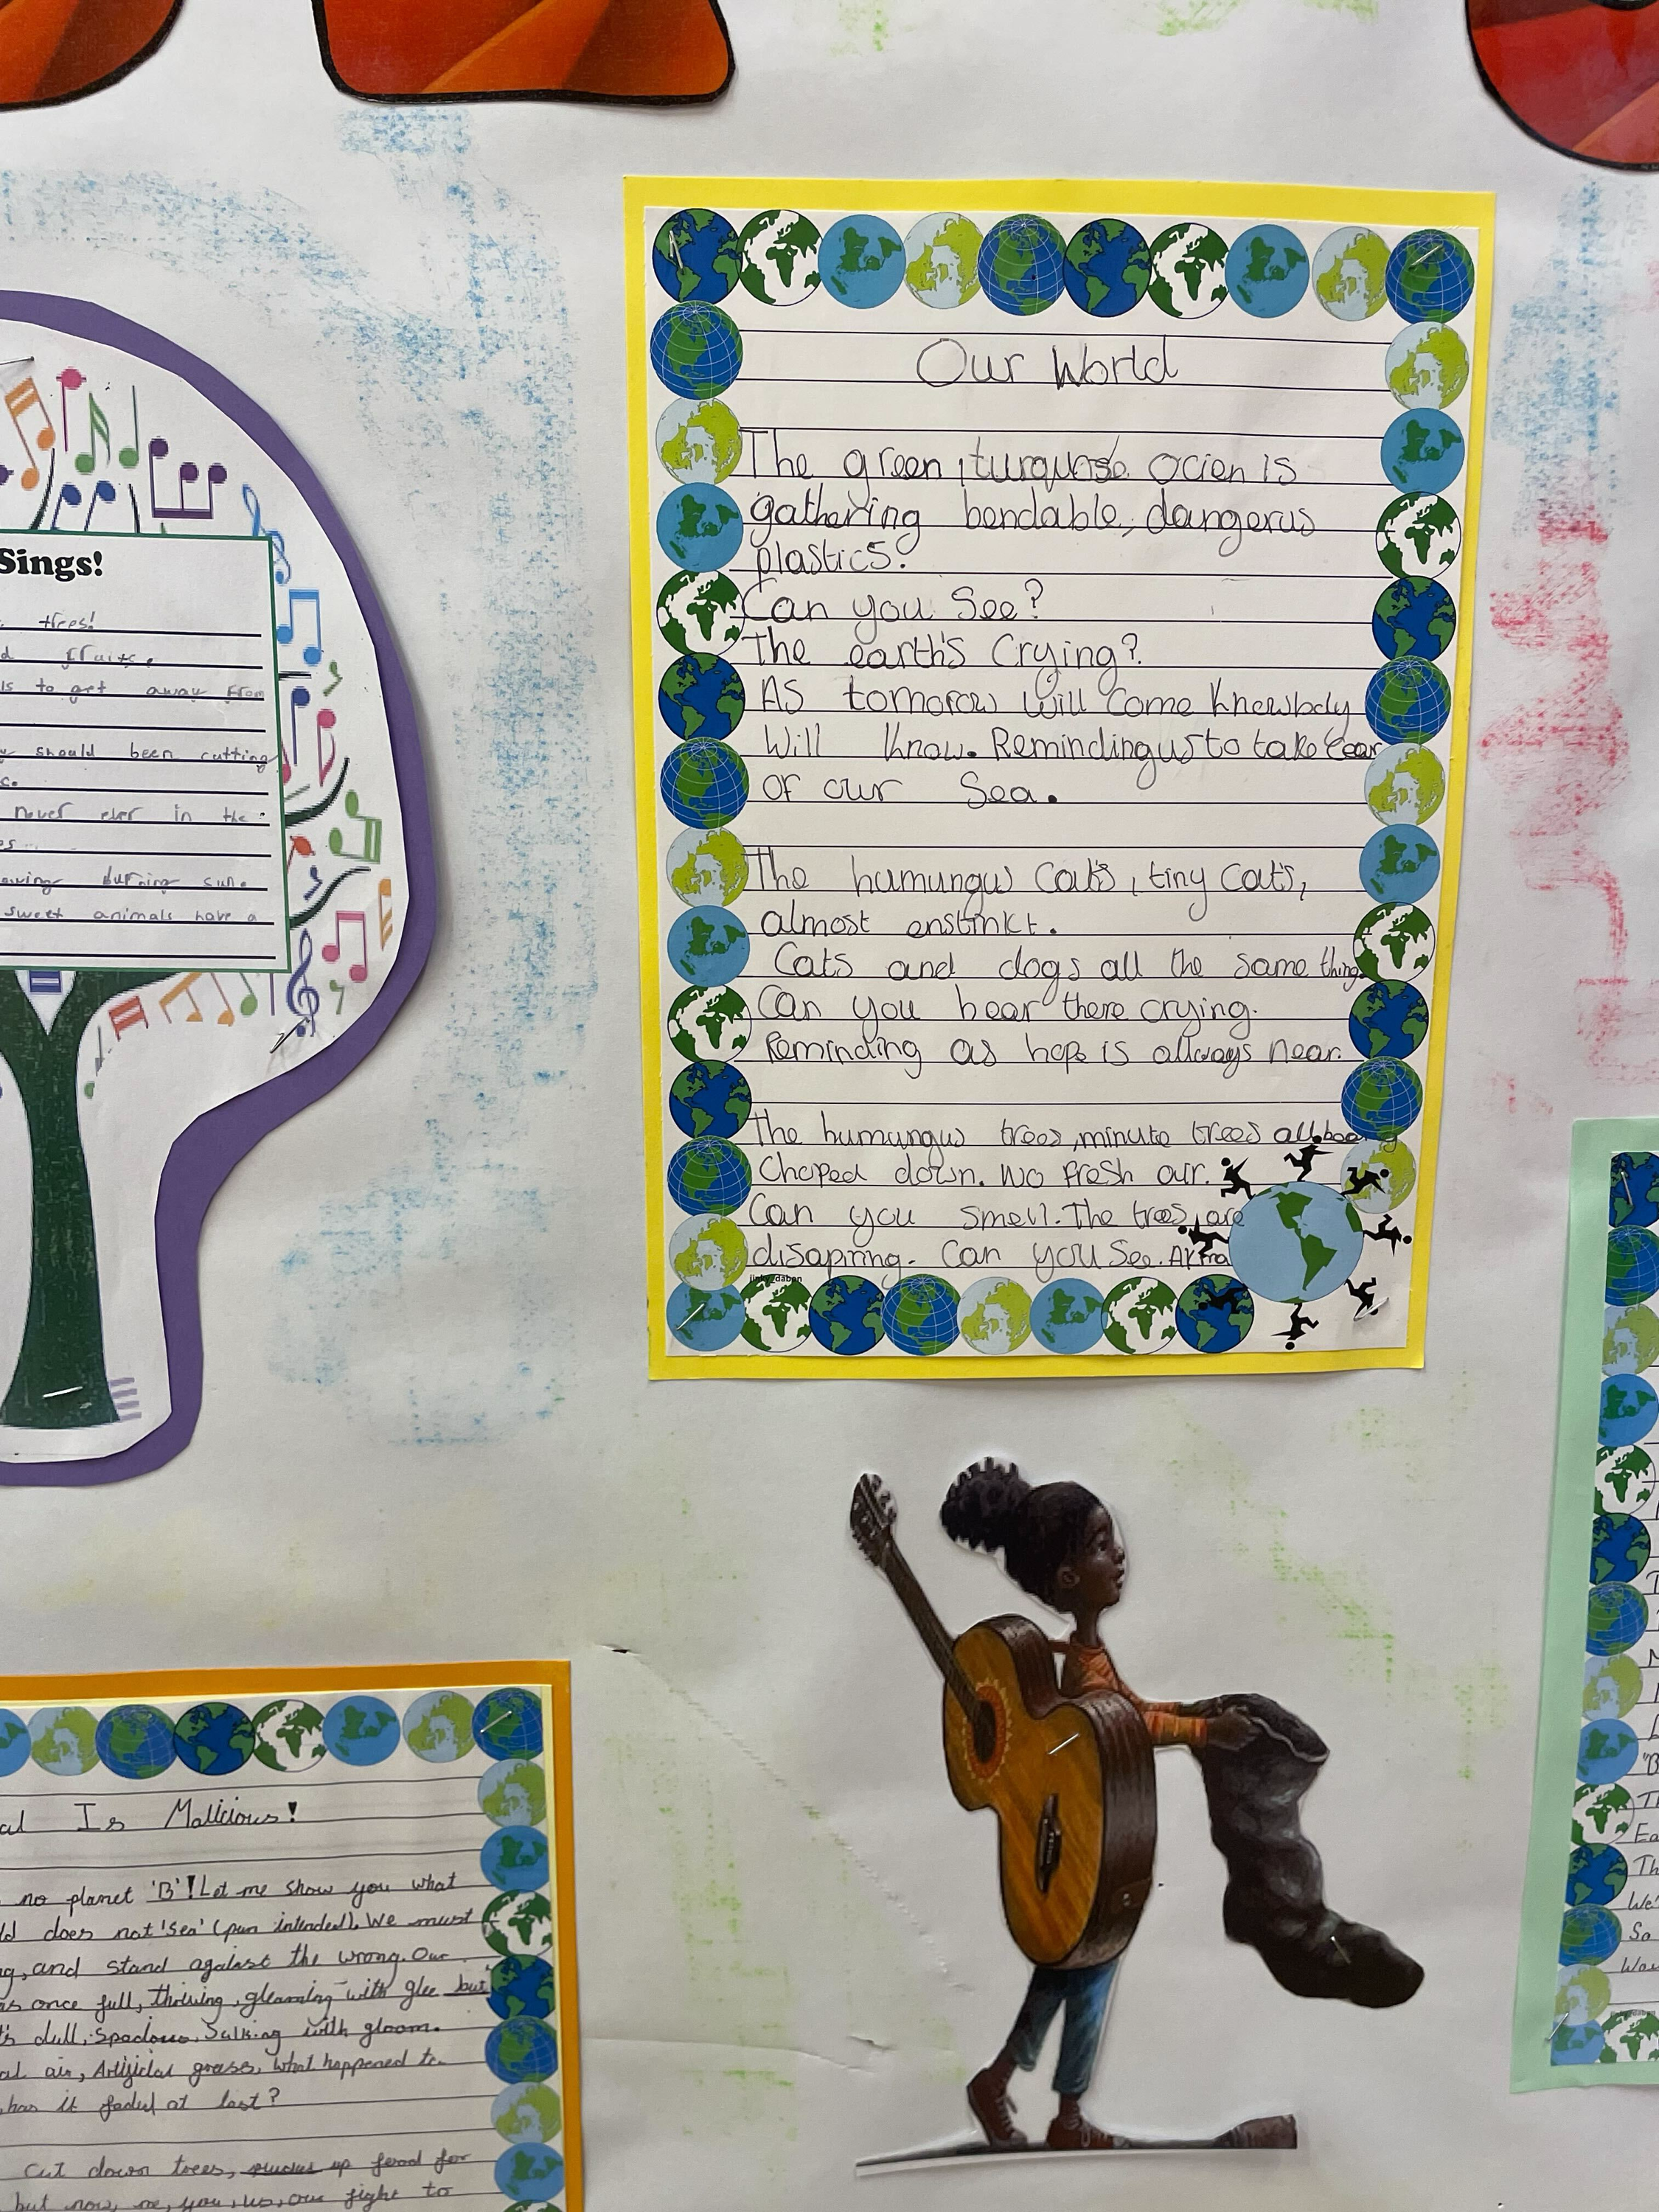 Our World
The green, turqurse ocien is
gathering bendable, dangerus
plastics.
Can you See?
The earth's Crying?
As tomorow will come knewbody
will know. Reminding us to take cear
of our Sea.
The humungus Cat's, tiny Cat's,
almost enstinkt.
Cats and dogs all the same thing.
Can you hear there crying.
Reminding as hope is allways near.
The humungus trees, minute trees all beeing
Choped down. No fresh air.
Can you smell. The trees are
disapring. Can you See.
jinkyzdaban
Sings!
trees!
d fruits.
ls to get away from
y should been cutting
never ever in the
burning sun.
sweet animals have a
al Is Malicious!
no planet 'B'! Let me show you what
ld does not 'sea' (pun intended). We must
g, and stand against the wrong. Our
as once full, thriving, gleaming with glee but
t's dull, spacious, Sulking with gloom.
al air, Artificial grass, what happened to
has it faded at last?
cut down trees, up food for
but now, me, you, us, our fight to
"B
Th
Ea
Th
We'
So